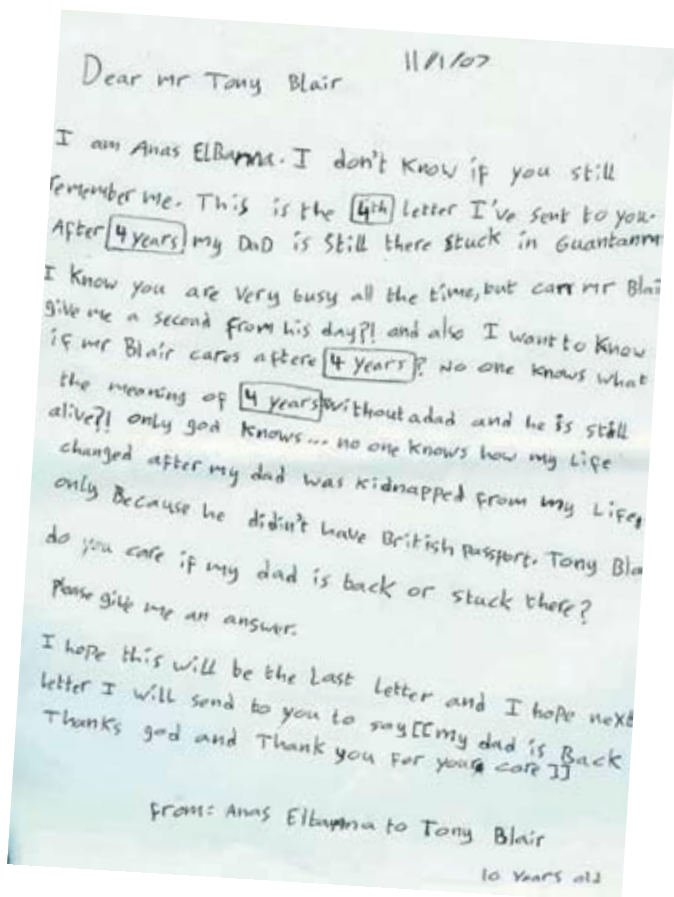 11/1/07
Dear mr Tony Blair
I am Anas ElBanna. I don't know if you still
remember me. This is the 4th letter I've sent to you.
After 4 years my DaD is still there stuck in Guantanm
I know you are very busy all the time, but can mr Blai
give me a second from his day?! and also I want to know
if mr Blair cares aftere 4 years? No one knows what
the meaning of 4 years without a dad and he is still
alive?! only god knows... no one knows how my Life
changed after my dad was kidnapped from my Life,
only Because he didin't have British passport. Tony Bla
do you care if my dad is back or stuck there?
Please give me an answer.
I hope this will be the Last letter and I hope next
letter I will send to you to say [[my dad is Back
Thanks god and Thank you For your care ]]
From: Anas Elbanna to Tony Blair
10 years old